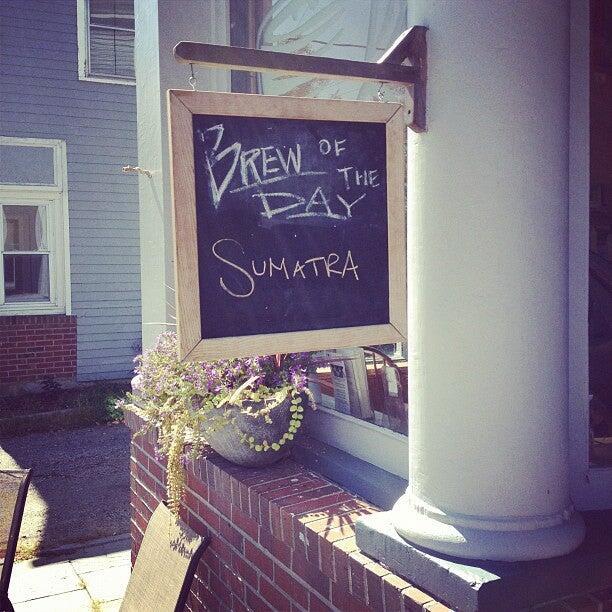 BREW OF
THE
DAY
SUMATRA